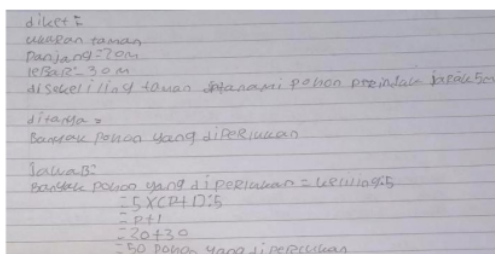 diket =
ukuran taman
Panjang = 20 m
leBaR = 30 m
disekeliling taman ditanami pohon peeindak jarak 5m
ditanya =
Banyak pohon yang diperlukan
jawaB:
Banyak pohon yang diperlukan = keliling : 5
= 5 x (P + l) : 5
= P + l
= 20 + 30
= 50 pohon yang diperlukan